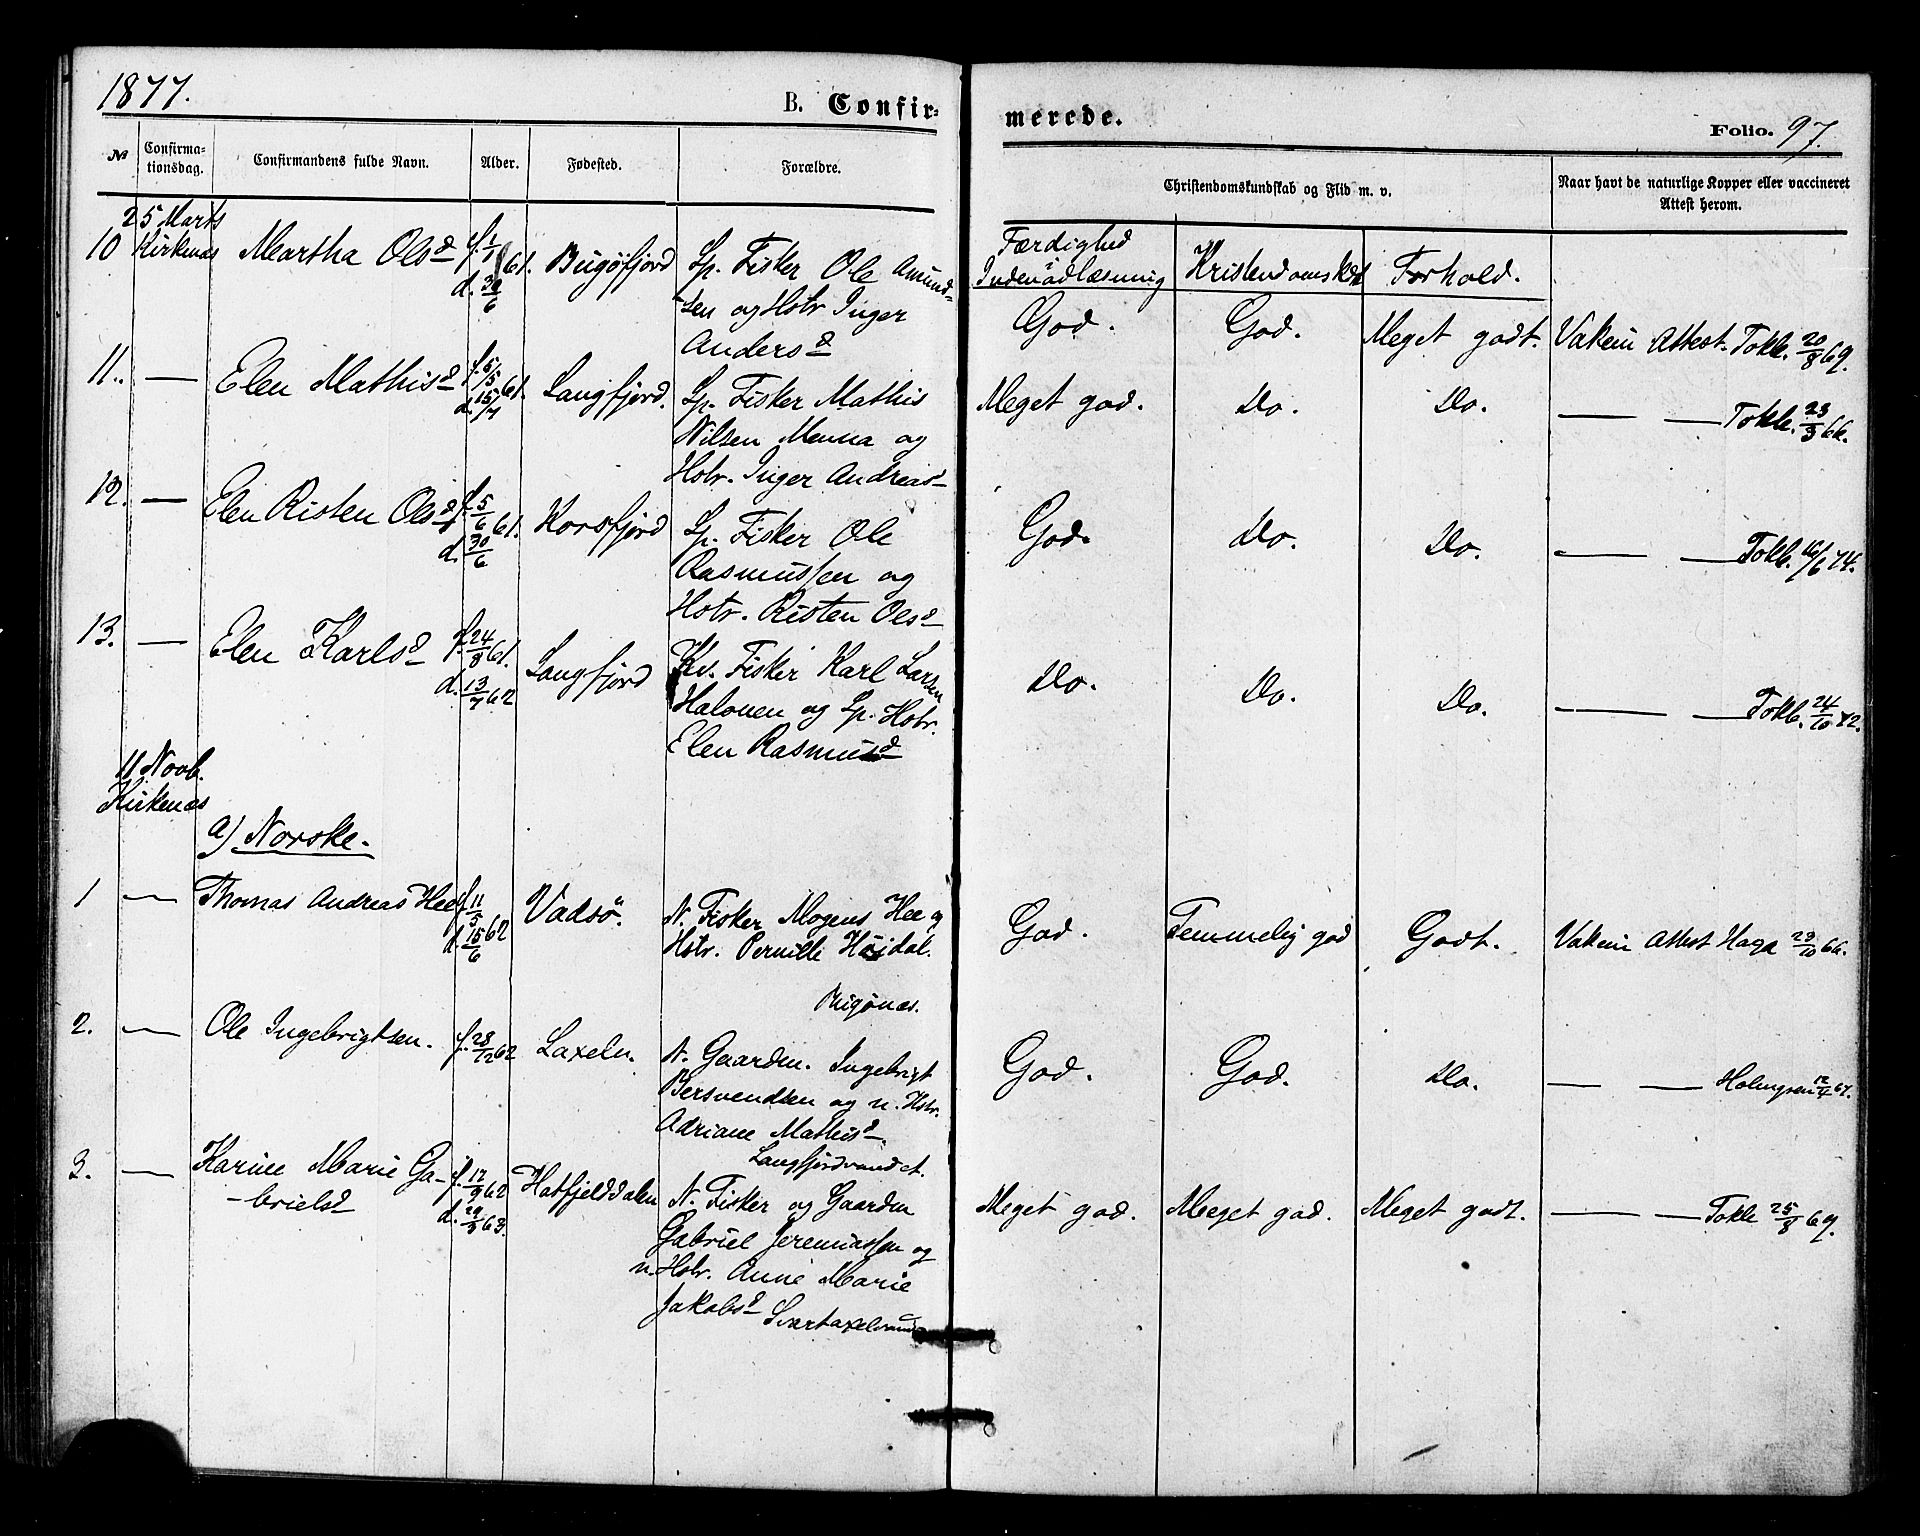 1877.
B. Confir-
merede.
Folio. 97.
№
Confirma-
tionsdag.
Confirmandens fulde Navn.
Alder.
Fødested.
Forældre.
Christendomskundskab og Flid m. v.
Naar havt de naturlige Kopper eller vaccineret
Attest herom.
Færdighed
i
Indenadlæsning
Kristendomsksk
Forhold.
25 Marts
Kirkenæs
10 Martha Olsd f. 1/1 61. d. 30/6 Bugöfjord
Lp. Fisker Ole Amund-
sen og Hstr Inger
Andersd
God. God. Meget godt. Vakcin Attest. Tokle. 20/8 69.
11. — Elen Mathisd f. 5/5 61. d. 15/7 Langfjord.
Lp. Fisker Mathis
Nilsen Menna og
Hstr. Inger Andreas-
Meget god. Do. Do. — — Tokle. 23/3 66.
12. — Elen Risten Olsd f. 5/6 61. d. 30/6 Korsfjord
Lp. Fisker Ole
Rasmussen og
Hstr. Risten Olsd
God. Do. Do. — — Tokle. 16/6 74.
13. — Elen Karlsd f. 24/8 61. d. 13/7 62 Langfjord
Kv. Fisker Karl Larsen
Halonen og Lp. Hstr.
Elen Rasmusd
Do. Do. Do. — — Tokle. 24/10 72.
11 Novb.
Kirkenæs
a) Norske.
1 — Thomas Andreas Hee f. 11/5 62 d. 15/6 Vadsö.
N. Fisker Mogens Hee og
Hstr. Pernille Höjdal.
Bugönæs.
God. Temmelig god Godt. Vakcin Attest Haga 23/10 66.
2. — Ole Ingebrigtsen. f. 28/12 62 Laxeln.
N. Gaardm. Ingebrigt
Bersvendsen og n. Hstr.
Adriane Mathisd.
Langfjordvandet.
God. God. Do. — — Holmgren 12/4 67.
3. — Karine Marie Ga-
-brielsd f. 12/9 62 d. 29/3 63. Hatfjelddalen
N. Fisker og Gaardm
Gabriel Jeremiassen og
n. Hstr. Anne Marie
Jakobsd Svartaxelvand
Meget god. Meget god. Meget godt. — — Tokle 25/8 69.